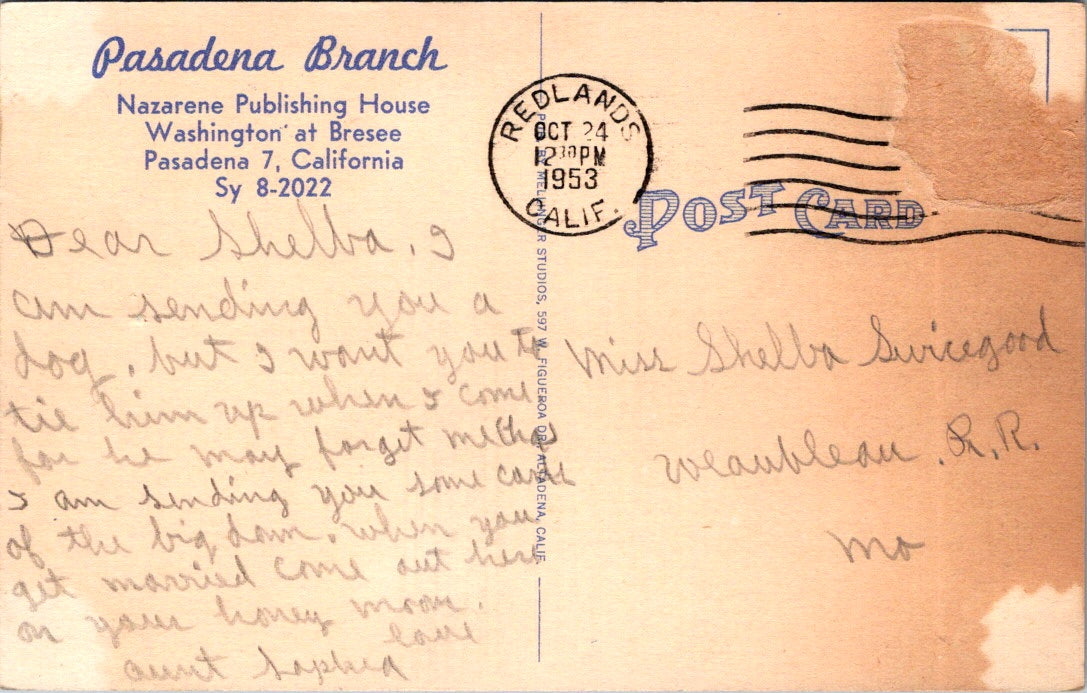 Pasadena Branch
Nazarene Publishing House
Washington at Bresee
Pasadena 7, California
Sy 8-2022
REDLANDS
OCT 24
12 30 PM
1953
CALIF.
POST CARD
Dear Shelba, I
am sending you a
dog, but I want you to
tie him up when I come
for he may forget me
I am sending you some
of the big dam. when you
get married come out here
on your honey moon.
love
aunt Sophia
MELLINGER STUDIOS, 597 W. FIGUEROA DR. ALTADENA, CALIF.
Miss Shelba Swicegood
Weaubleau, R.R.
Mo